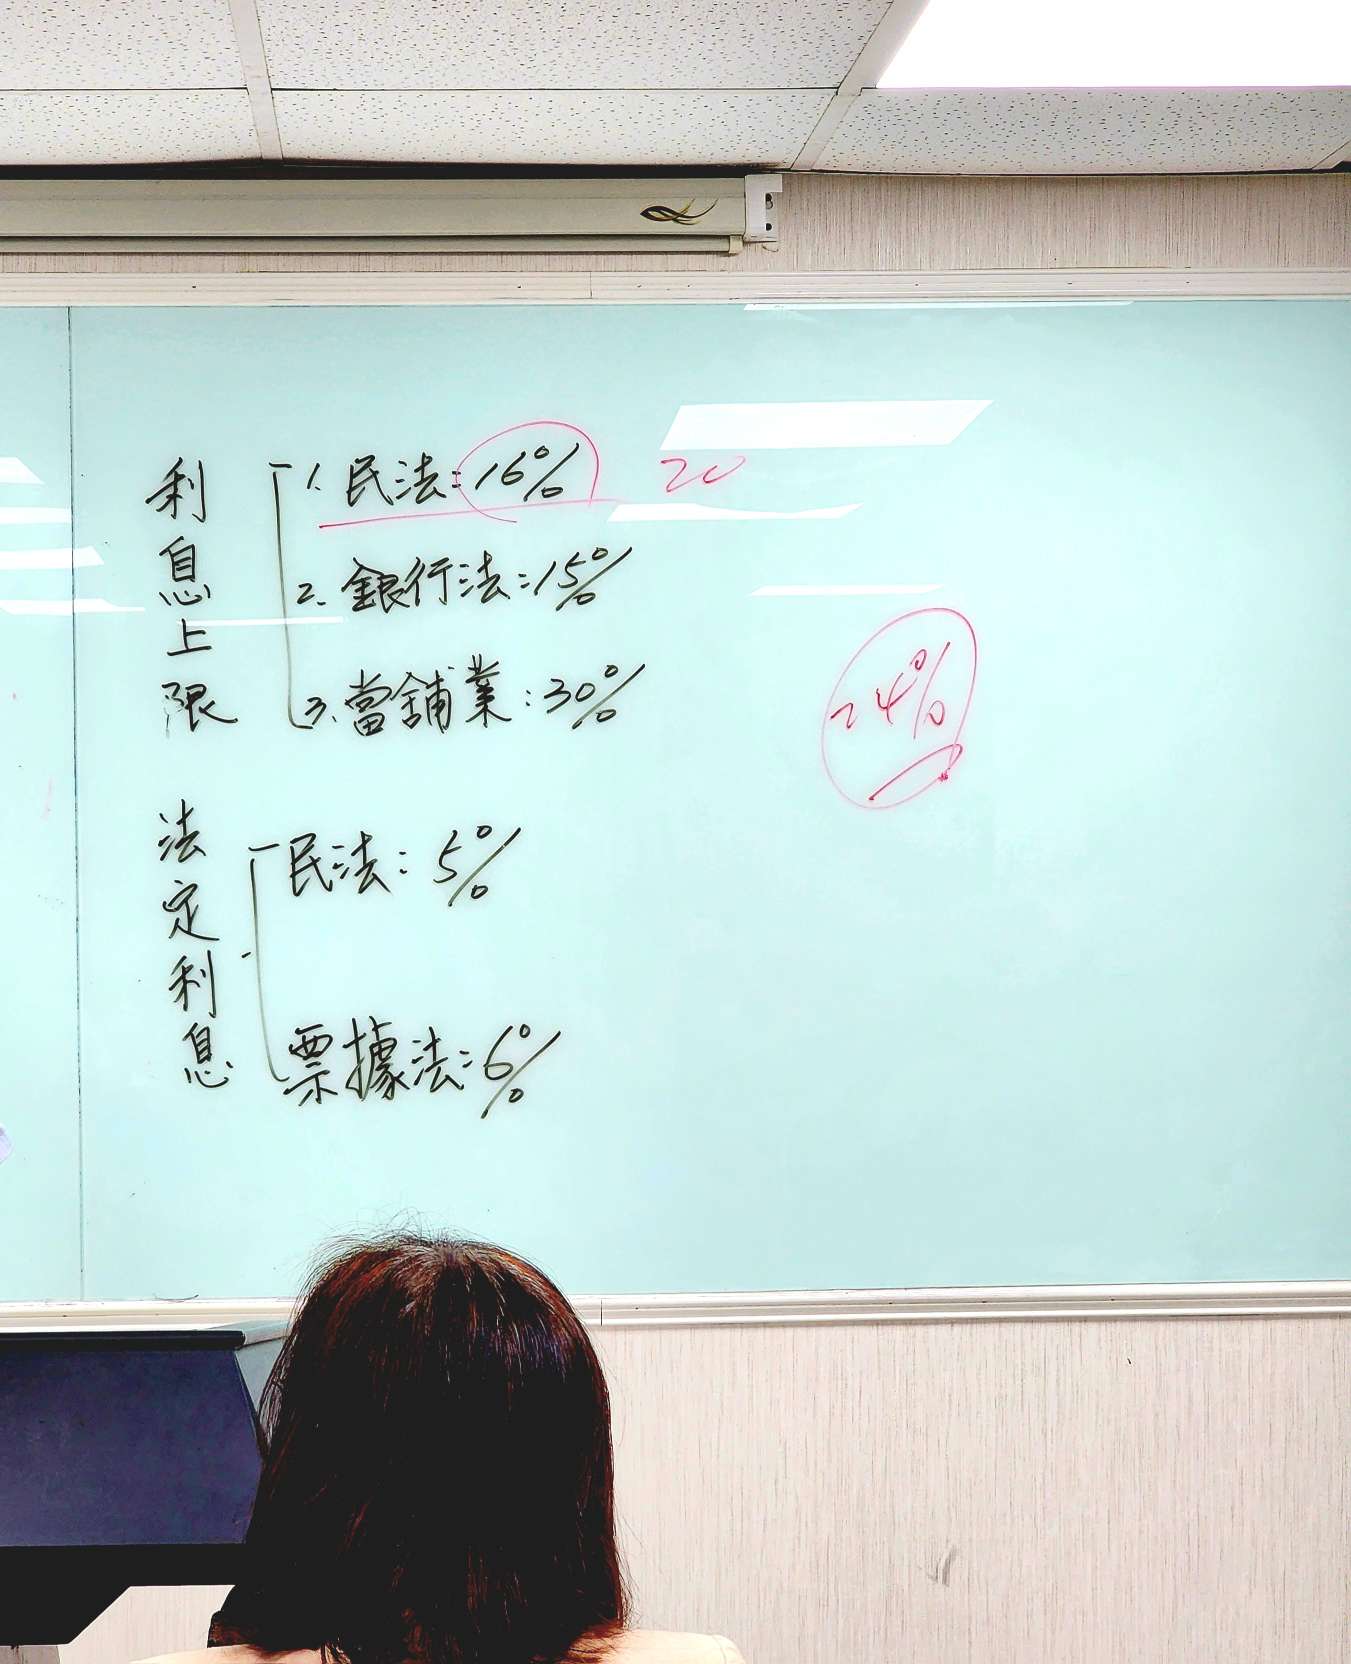 利息上限
1. 民法：16% 20
2. 銀行法：15%
3. 當舖業：30%
24%
法定利息
民法：5%
票據法：6%